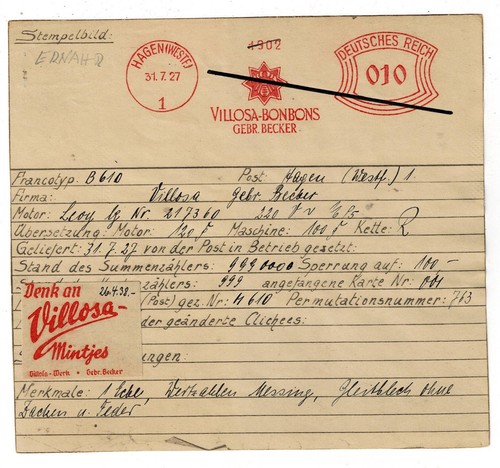 Stempelbild:
ERNAH
HAGEN (WESTF)
31.7.27
1
4302
VILLOSA-BONBONS
GEBR. BECKER
DEUTSCHES REICH
010
Francotyp. B 610 Post: Hagen (Westf.) 1.
Firma: Villosa Gebr. Becker
Motor: Nr. 217360 220 V
Übersetzung: Motor: 120 F Maschine: 100 F Kette: R
Geliefert: 31.7.27 von der Post in Betrieb gesetzt:
Stand des Summenzählers: 9990000 Sperrung auf: 100-
zählers: 999 angefangene Karte Nr: 001
(Post) gez. Nr: H 610 Permutationsnummer: 713
der geänderte Clichees:
ungen:
Denk an
26.4.38.-
Villosa-
Mintjes
Villosa-Werk • Gebr. Becker
Merkmale: 1 Wertzahlen Messing, Gleitblech ohne
Zacken u. Feder